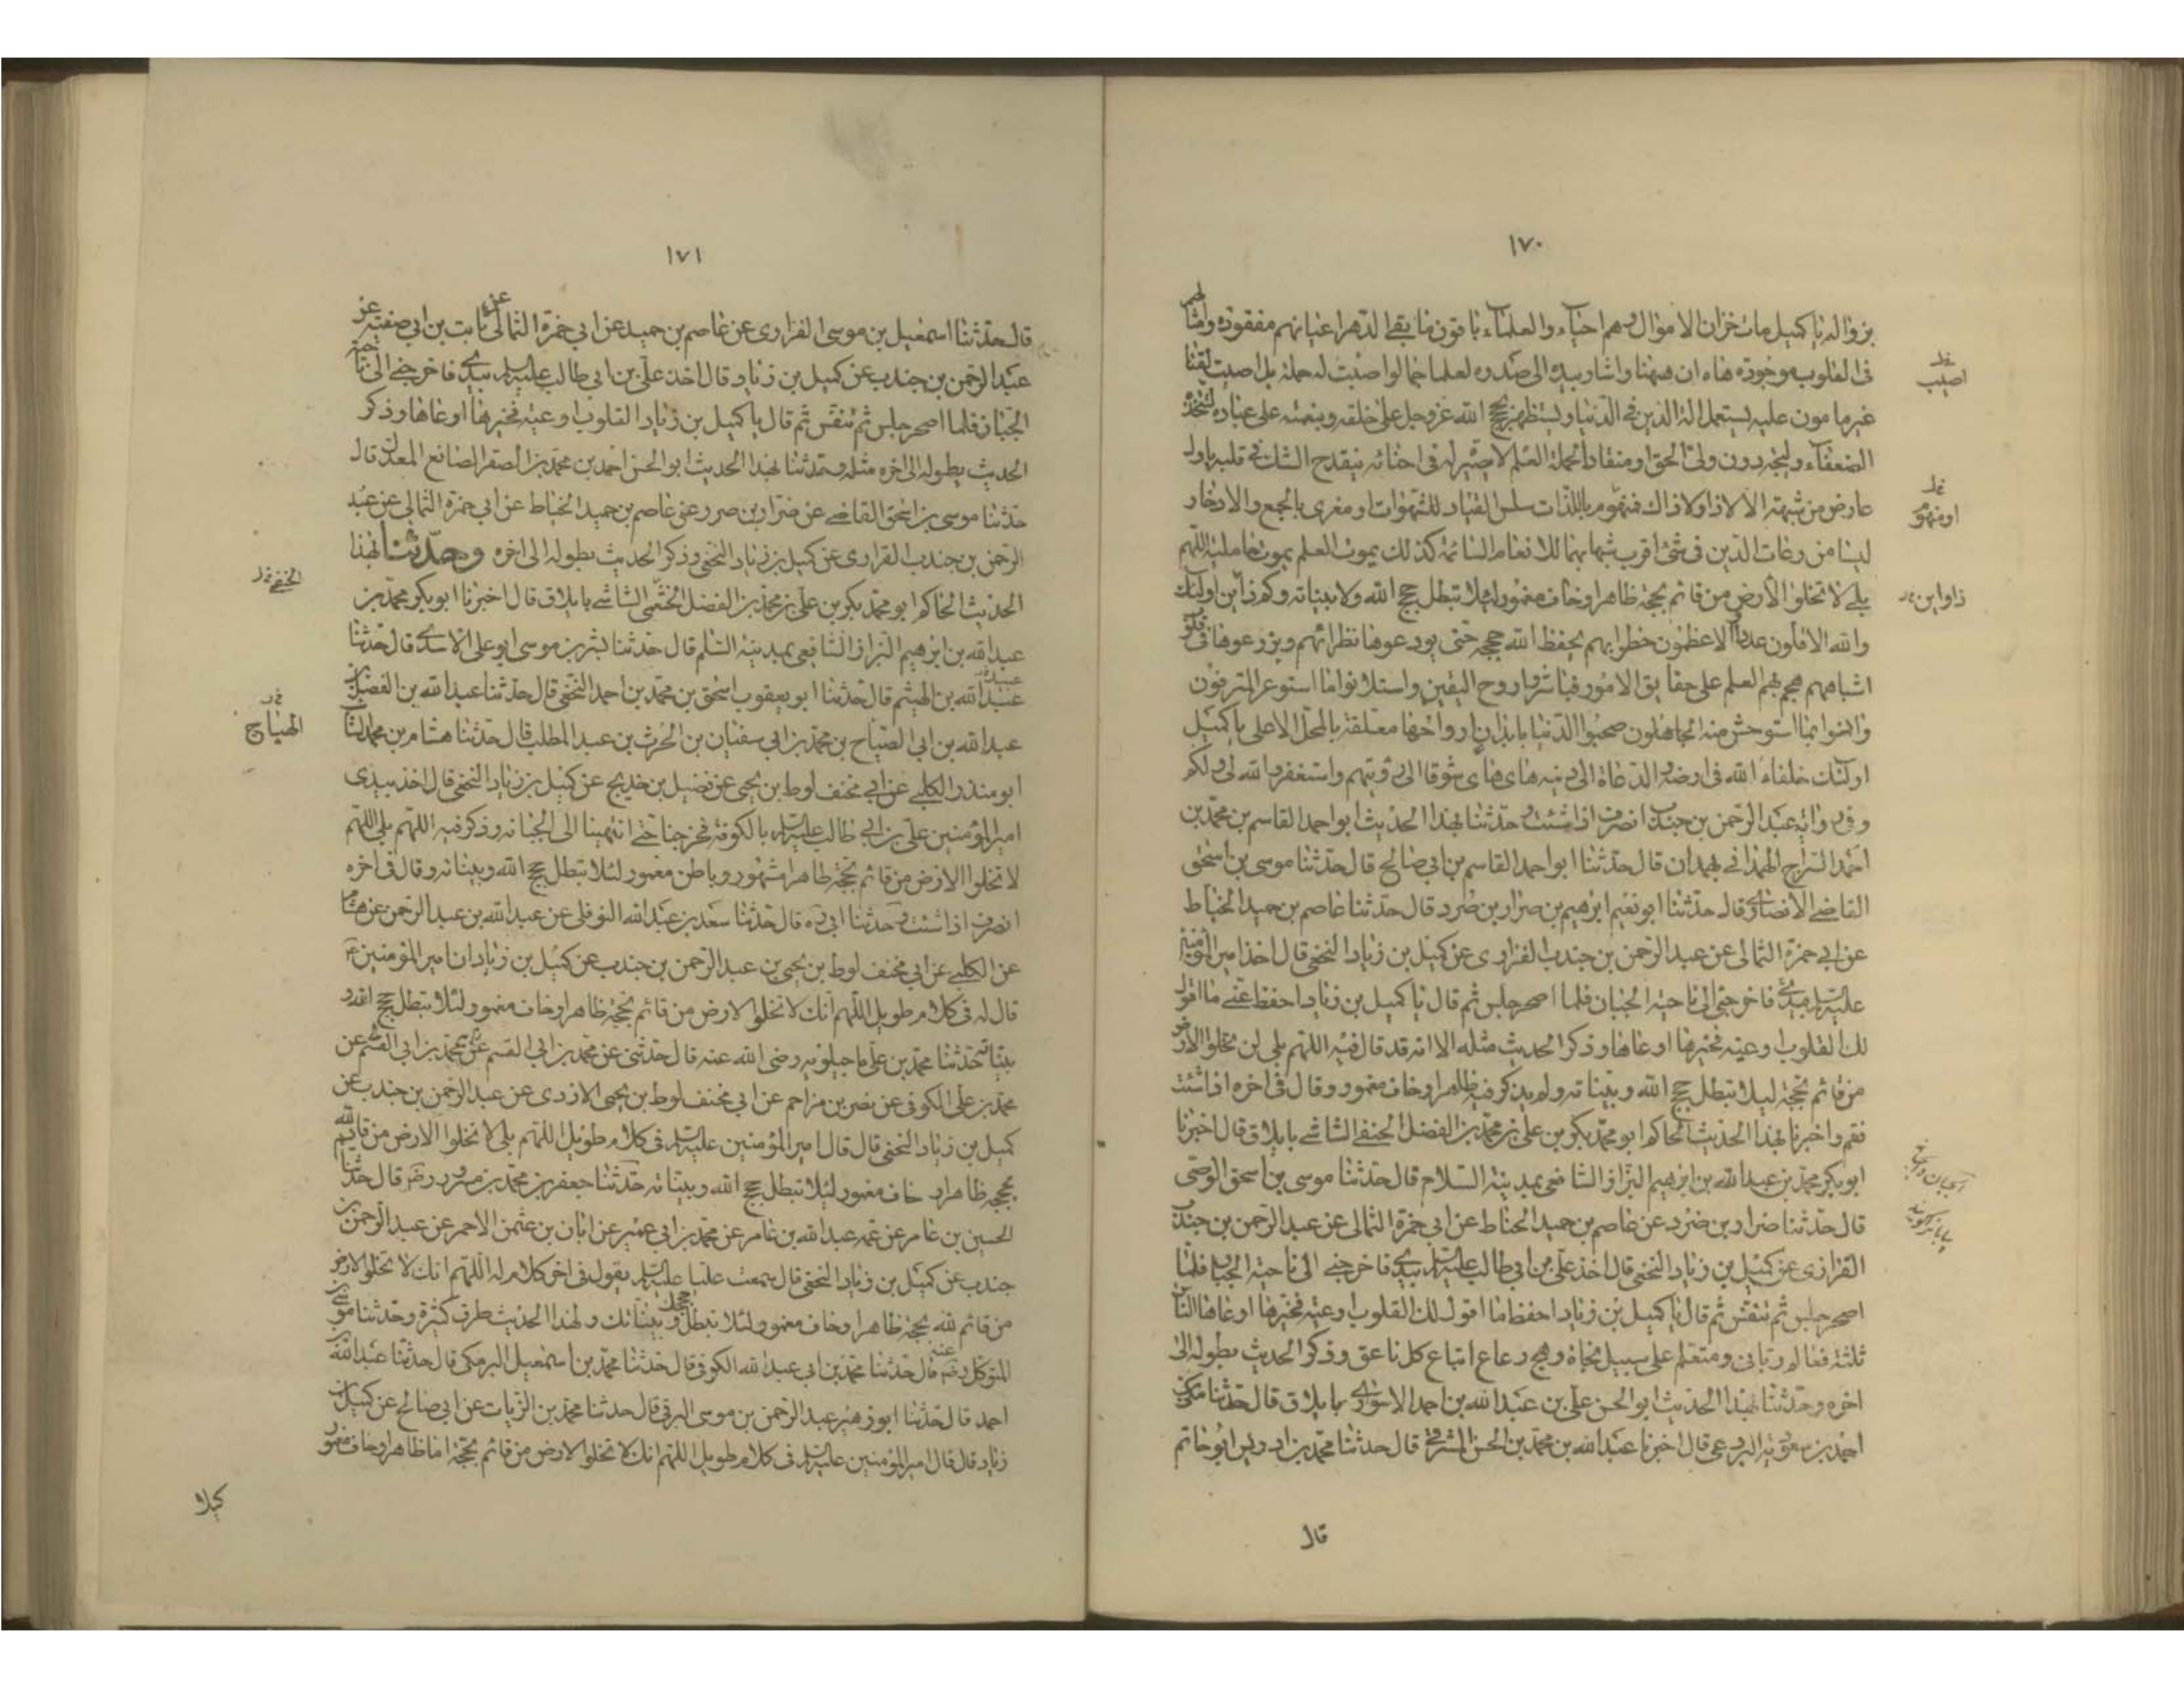 ١٧٠
بزواله يا كميل مات خزان الاموال وهم احياء والعلماء باقون ما بقي الدهر اعيانهم مفقودة وامثالهم
في القلوب موجودة هاه ان هيهنا واشار بيده الى صدره لعلما جما لو اصبت له حملة بل اصبت لقنا
غير مامون عليه يستعمل الة الدين في الدنيا ويستظهر بحجج الله عز وجل على خلقه وبنعمه على عباده ليتخذه
الضعفاء وليجة دون ولي الحق او منقادا لحملة العلم لا بصيرة له في احنائه ينقدح الشك في قلبه باول
عارض من شبهة الا لا ذا ولا ذاك فمنهوم باللذات سلس القياد للشهوات او مغرى بالجمع والادخار
ليسا من رعاة الدين في شئ اقرب شبها بهما الانعام السائمة كذلك يموت العلم بموت حامليه اللهم
بلى لا تخلوا الارض من قائم بحجة ظاهر او خاف مغمور لئلا تبطل حجج الله ولا بيناته وكم ذا اين اولئك
والله الاقلون عددا الاعظمون خطرا بهم يحفظ الله حججه حتى يودعوها نظرائهم ويزرعوها في قلوب
اشباههم هجم بهم العلم على حقايق الامور فباشروا روح اليقين واستلانوا ما استوعر المترفون
وانسوا بما استوحش منه الجاهلون صحبوا الدنيا بابدان ارواحها معلقة بالمحل الاعلى يا كميل
اولئك خلفاء الله في ارضه والدعاة الى دينه هاى هاى شوقا الى رؤيتهم واستغفر الله لي ولكم
وفي رواية عبد الرحمن بن جندب انصرف اذا شئت وحدثنا بهذا الحديث ابو احمد القاسم بن محمد بن
احمد السراج الهمداني بهمدان قال حدثنا ابو احمد القاسم بن ابي صالح قال حدثنا موسى بن اسحق
القاضي الانصاري قال حدثنا ابو نعيم ابرهيم بن ضرار بن صرد قال حدثنا عاصم بن حميد الخياط
عن ابي حمزة الثمالي عن عبد الرحمن بن جندب الفزاري عن كميل بن زياد النخعي قال اخذ امير المؤمنين
عليه السلم بيدي فاخرجني الى ناحية الجبان فلما اصحر جلس ثم قال يا كميل بن زياد احفظ عني ما اقول
لك القلوب اوعية فخيرها اوعاها وذكر الحديث مثله الا انه قد قال فيه اللهم بلى لن تخلو الارض
من قائم بحجة ليلا تبطل حجج الله وبيناته ولم يذكر فيه ظاهر او خاف مغمور وقال في اخره اذا شئت
فقم واخبرنا بهذا الحديث الحاكم ابو محمد بكر بن علي بن محمد بن الفضل الحنفي الشاشي بايلاق قال اخبرنا
ابو بكر محمد بن عبد الله بن ابرهيم البزاز الشافعي بمدينة السلام قال حدثنا موسى بن اسحق الوصى
قال حدثنا ضرار بن ضرد عن عاصم بن حميد الحناط عن ابي حمزة الثمالي عن عبد الرحمن بن جندب
الفزازى عن كميل بن زياد النخعي قال اخذ علي بن ابي طالب عليه السلم بيدي فاخرجني الى ناحية الجبان فلما
اصحر جلس ثم تنفس ثم قال يا كميل بن زياد احفظ ما اقول لك القلوب اوعية فخيرها اوعاها الناس
ثلثة فعالم رباني ومتعلم على سبيل نجاة وهمج رعاع اتباع كل ناعق وذكر الحديث بطوله الى
اخره وحدثنا بهذا الحديث ابو الحسن علي بن عبد الله بن احمد الاسوارى بايلاق قال حدثنا مكى بن
احمد بن سعويه البردعي قال اخبرنا عبد الله بن محمد بن الحسن المشرقي قال حدثنا محمد بن ادريس ابو حاتم
قال
اصيب
او منهو
ذا واين
١٧١
قال حدثنا اسمعيل بن موسى الفزاري عن عاصم بن حميد عن ابي حمزة الثمالي عن ثابت بن ابي صفية عن
عبد الرحمن بن جندب عن كميل بن زياد قال اخذ علي بن ابي طالب عليه السلم بيدي فاخرجني الى ناحية
الجبان فلما اصحر جلس ثم تنفس ثم قال يا كميل بن زياد القلوب اوعية فخيرها اوعاها وذكر
الحديث بطوله الى اخره مثله وحدثنا بهذا الحديث ابو الحسن احمد بن محمد بن الصقر الصائغ المعدل قال
حدثنا موسى بن اسحق القاضي عن ضرار بن صرد عن عاصم بن حميد الخياط عن ابي حمزة الثمالي عن عبد
الرحمن بن جندب الفزارى عن كميل بن زياد النخعي وذكر الحديث بطوله الى اخره وحدثنا بهذا
الحديث الحاكم ابو محمد بكر بن علي بن محمد بن الفضل الحنفي الشاشي بايلاق قال اخبرنا ابو بكر محمد بن
عبد الله بن ابرهيم البزاز الشافعي بمدينة السلم قال حدثنا بشر بن موسى ابو علي الاسدي قال حدثنا
عبد الله بن الهيثم قال حدثنا ابو يعقوب اسحق بن محمد بن احمد النخعي قال حدثنا عبد الله بن الفضل بن
عبد الله بن ابي الصياح بن محمد بن ابي سفيان بن الحرث بن عبد المطلب قال حدثنا هشام بن محمد السائب
ابو منذر الكلبي عن ابي مخنف لوط بن يحيى عن فضيل بن خديج عن كميل بن زياد النخعي قال اخذ بيدي
امير المؤمنين علي بن ابي طالب عليه السلم بالكوفة فخرجنا حتى انتهينا الى الجبانه وذكر فيه اللهم بلى اللهم
لا تخلوا الارض من قائم بحجة ظاهر مشهور وباطن مغمور لئلا تبطل حجج الله وبيناته وقال في اخره
انصرف اذا شئت وحدثنا ابي ره قال حدثنا سعد بن عبد الله النوفلي عن عبد الله بن عبد الرحمن عن هشام
عن الكلبي عن ابي مخنف لوط بن يحيى بن عبد الرحمن بن جندب عن كميل بن زياد ان امير المؤمنين ع
قال له في كلام طويل اللهم انك لا تخلوا الارض من قائم بحجة ظاهر او خاف مغمور لئلا تبطل حجج الله و
بيناته حدثنا محمد بن علي ماجيلويه رضي الله عنه قال حدثني عن محمد بن ابي القسم عن محمد بن ابي القسم عن
محمد بن علي الكوفي عن نصر بن مزاحم عن ابي مخنف لوط بن يحيى الازدي عن عبد الرحمن بن جندب عن
كميل بن زياد النخعي قال قال امير المؤمنين عليه السلم في كلام طويل اللهم بلى لا تخلوا الارض من قائم لله
بحجه ظاهر خاف مغمور لئلا تبطل حجج الله وبيناته حدثنا جعفر بن محمد بن مسرور رضه قال حدثنا
الحسين بن عامر عن عمه عبد الله بن عامر عن محمد بن ابي عمير عن ابان بن عثمن الاحمر عن عبد الرحمن بن
جندب عن كميل بن زياد النخعي قال سمعت عليا عليه السلم يقول في اخر كلام له اللهم انك لا تخلو الارض
من قائم لله بحجة ظاهر او خاف مغمور لئلا تبطل حججك وبيناتك ولهذا الحديث طرق كثيرة وحدثنا موسى بن
المتوكل رضه قال حدثنا محمد بن ابي عبد الله الكوفي قال حدثنا محمد بن اسمعيل البرمكي قال حدثنا عبد الله بن
احمد قال حدثنا ابو زهير عبد الرحمن بن موسى البرقي قال حدثنا محمد بن الزيات عن ابي صالح عن كميل بن
زياد قال قال امير المؤمنين عليه السلم في كلام طويل اللهم انك لا تخلوا الارض من قائم بحجة اما ظاهر او خاف مغمور
كيلا
الهياج